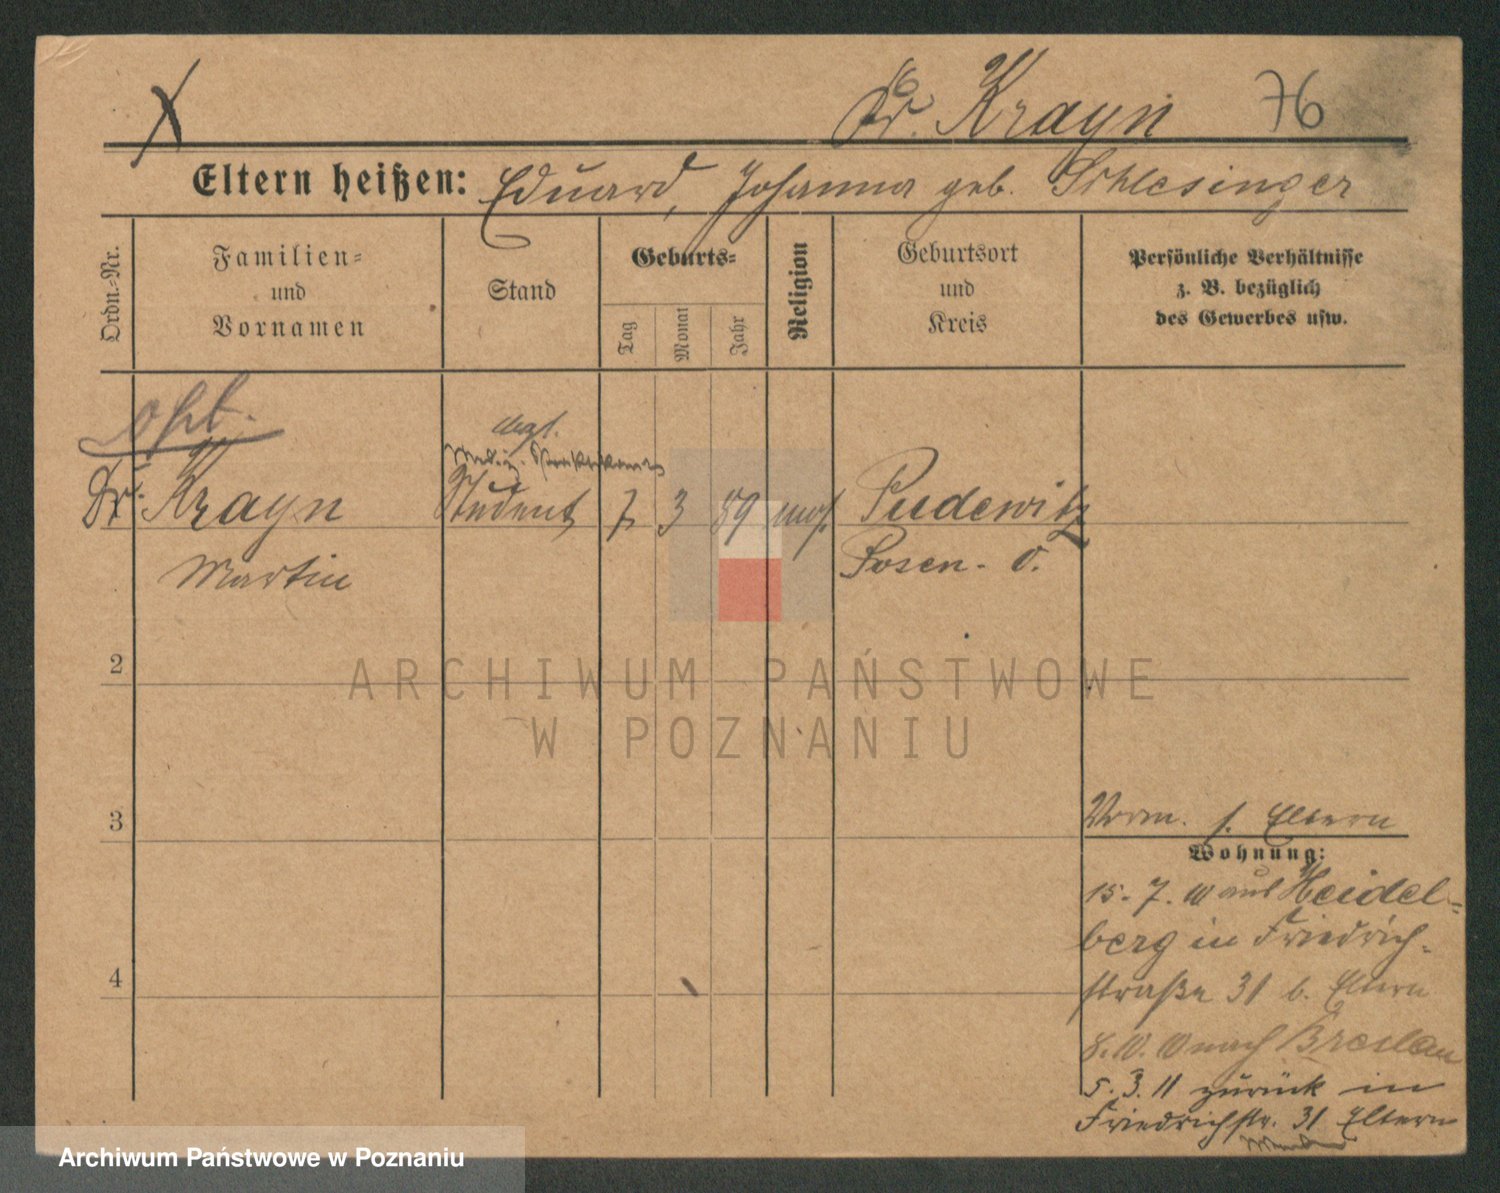 Dr. Krayn 76
Eltern heißen: Eduard, Johanna geb. Schlesinger
Ordn.-Nr.
Familien-
und
Vornamen
Stand
Geburts-
Tag
Monat
Jahr
Religion
Geburtsort
und
Kreis
Persönliche Verhältnisse
z. B. bezüglich
des Gewerbes usw.
Dr. Krayn
Martin
Student
7 3 89 mos.
Pudewitz
Posen. O.
2
3
4
Vorm. s. Eltern
Wohnung:
15. 7. 10 aus Heidel-
berg in Friedrich-
straße 31 b. Eltern
8. 10. 10 nach Breslau
5. 3. 11 zurück in
Friedrichstr. 31 Eltern
ARCHIWUM PAŃSTWOWE
W POZNANIU
Archiwum Państwowe w Poznaniu